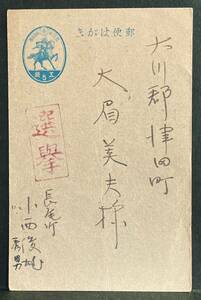 郵便はがき
大川郡津田町
大眉美夫様
選擧
長尾町
小西